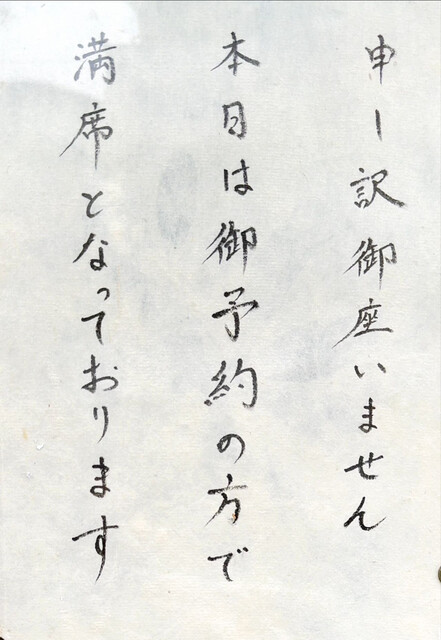 申し訳御座いません
本日は御予約の方で
満席となっております